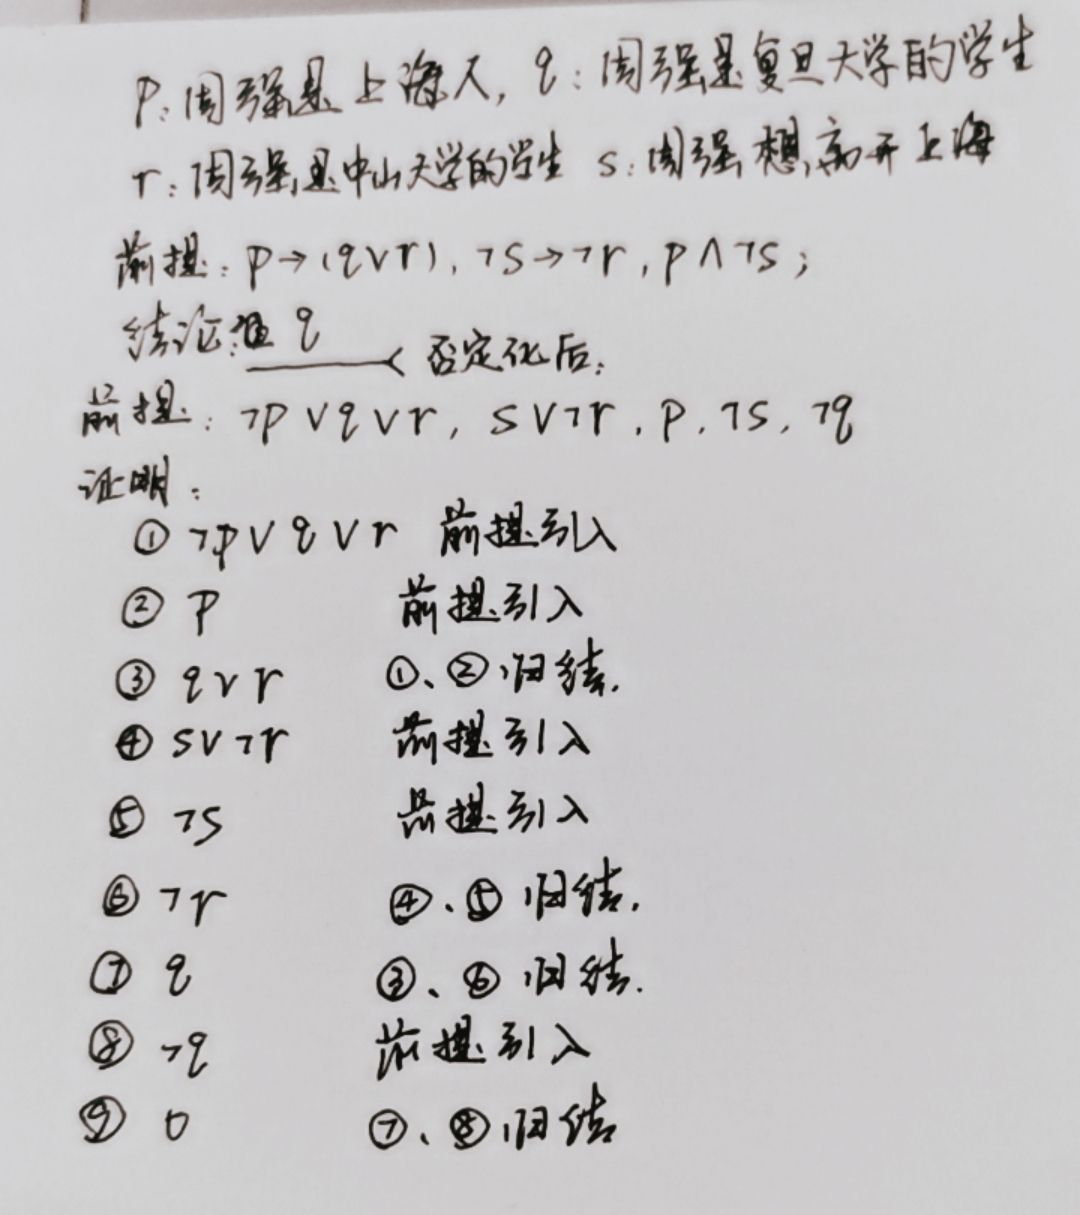 p：周强是上海人，q：周强是复旦大学的学生
r：周强是中山大学的学生 s：周强想离开上海
前提：p→(q∨r)，¬s→¬r，p∧¬s；
结论：q 否定化后：
前提：¬p∨q∨r，s∨¬r，p，¬s，¬q
证明：
① ¬p∨q∨r 前提引入
② p 前提引入
③ q∨r ①、②归结.
④ s∨¬r 前提引入
⑤ ¬s 前提引入
⑥ ¬r ④、⑤归结.
⑦ q ③、⑥归结.
⑧ ¬q 前提引入
⑨ 0 ⑦、⑧归结